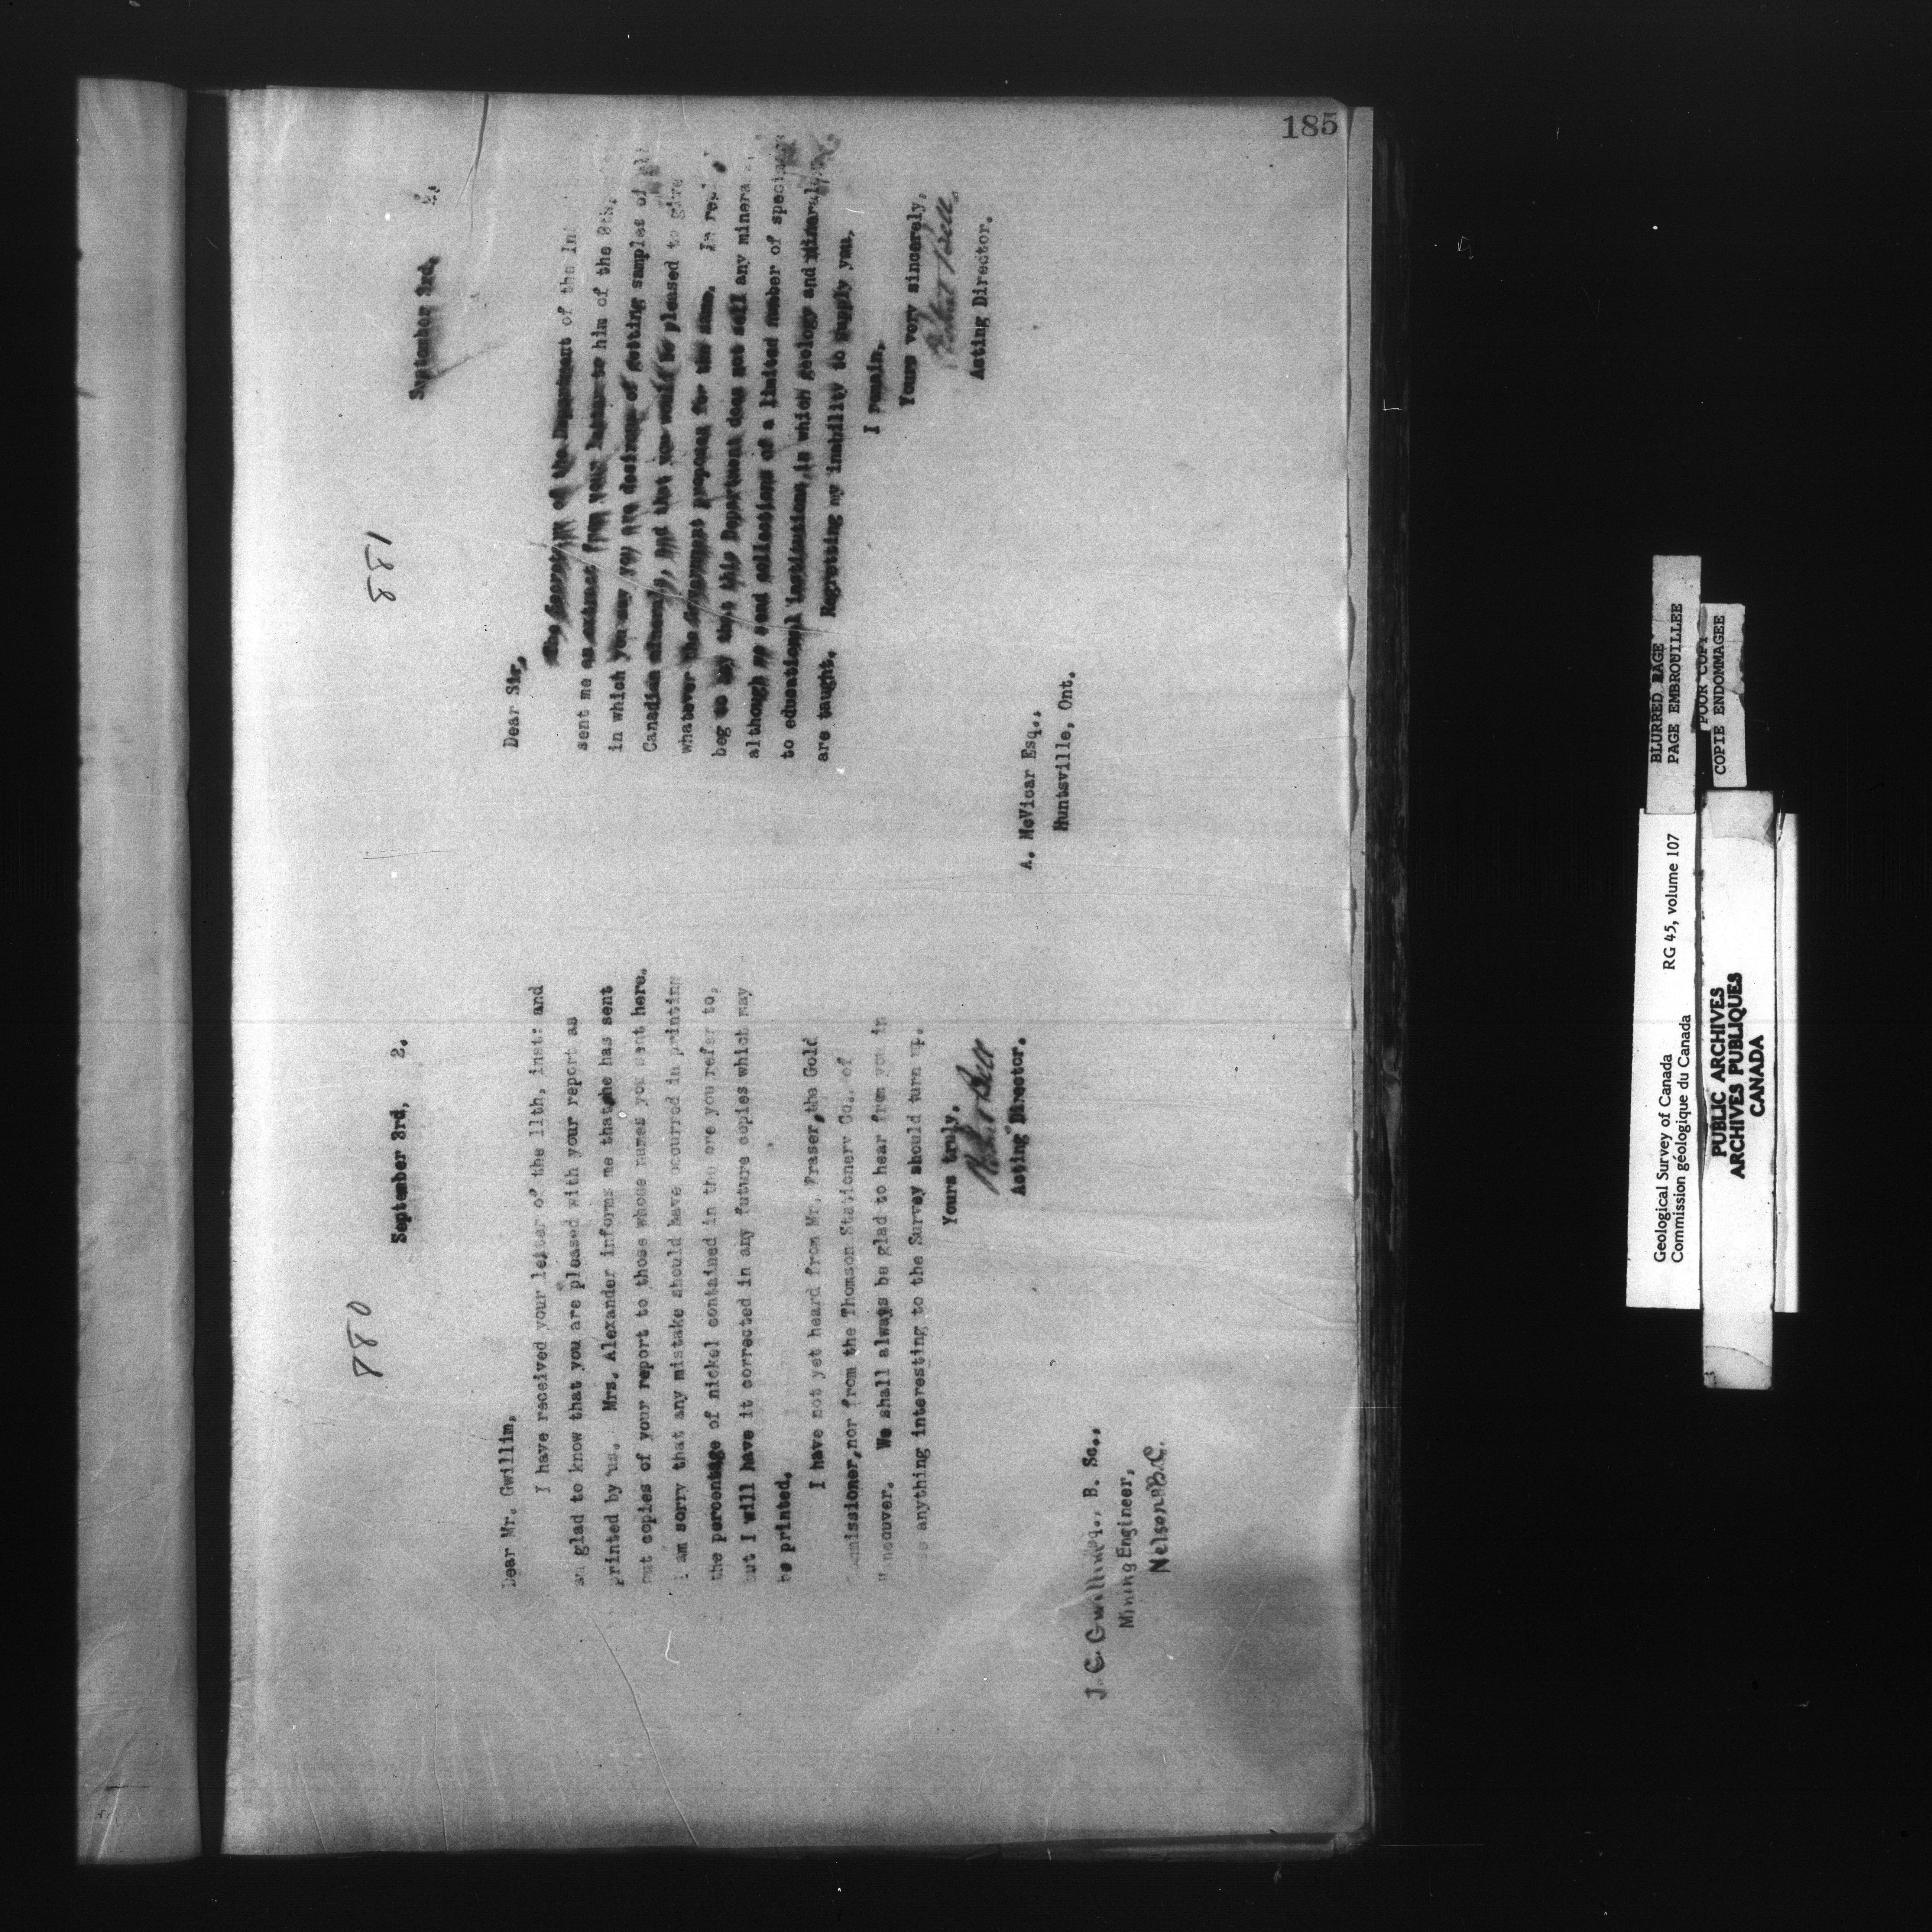 185
880
September 3rd, 2.
Dear Mr. Gwillim,
I have received your letter of the 11th, inst: and
am glad to know that you are pleased with your report as
printed by us. Mrs. Alexander informs me that she has sent
out copies of your report to those whose names you sent here.
I am sorry that any mistake should have occurred in printing
the percentage of nickel contained in the ore you refer to,
but I will have it corrected in any future copies which may
be printed.
I have not yet heard from Mr. Fraser, the Gold
Commissioner, nor from the Thomson Stationery Co., of
Vancouver. We shall always be glad to hear from you in
anything interesting to the Survey should turn up.
Yours truly,
Robert Bell
Acting Director.
J. C. Gwillim Esq., B. Sc.,
Mining Engineer,
Nelson B.C.
881
September 3rd, 2.
Dear Sir,
The Secretary of the Department of the
sent me an extract from your letter to him of the 9th,
in which you say you are desirous of getting samples of all
Canadian minerals, and that you would be pleased to give
whatever the Government proposes for the same. In reply
beg to say that this Department does not sell any minerals,
although we send collections of a limited number of specimens
to educational institutions, in which geology and mineralogy
are taught. Regretting my inability to supply you,
I remain,
Yours very sincerely,
Robert Bell
Acting Director.
A. McVicar Esq.,
Huntsville, Ont.
BLURRED PAGE
PAGE EMBROUILLEE
POOR COPY
COPIE ENDOMMAGEE
Geological Survey of Canada RG 45, volume 107
Commission géologique du Canada
PUBLIC ARCHIVES
ARCHIVES PUBLIQUES
CANADA